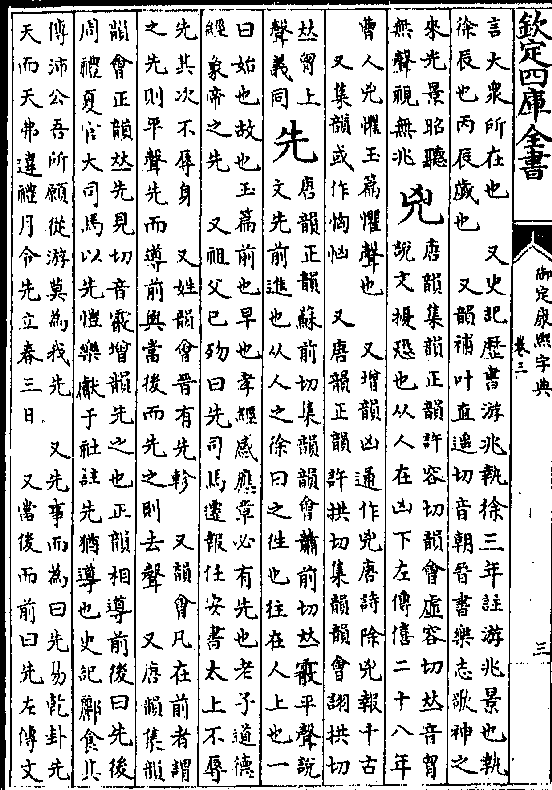 欽定四庫全書
御定康熙字典
卷三
三
言大衆所在也　又史記歷書游兆執徐三年註游兆景也執
徐辰也丙辰歲也　又韻補叶直遥切音朝晉書樂志歌神之
來光景昭聽無聲視無兆
兇
唐韻集韻正韻許容切韻會虛容切𠀤音胷
說文擾恐也从人在凶下左傳僖二十八年
曹人兇懼玉篇懼聲也　又增韻凶通作兇唐詩除兇報千古
又集韻或作恟忷　又唐韻正韻許拱切集韻韻會詡拱切
𠀤胷上聲義同
先
唐韻正韻蘇前切集韻韻會蕭前切𠀤霰平聲說
文先前進也从人之徐曰之往也往在人上也一
曰始也故也玉篇前也早也孝經感應章必有先也老子道德
經象帝之先　又祖父已歿曰先司馬遷報任安書太上不辱
先其次不辱身　又姓韻會晉有先軫　又韻會凡在前者謂
之先則平聲先而導前與當後而先之則去聲　又唐韻集韻
韻會正韻𠀤先見切音霰增韻先之也正韻相導前後曰先後
周禮夏官大司馬以先愷樂獻于社註先猶導也史記酈食其
傳沛公吾所願從游莫為我先　又先事而為曰先易乾卦先
天而天弗違禮月令先立春三日　又當後而前曰先左傳文